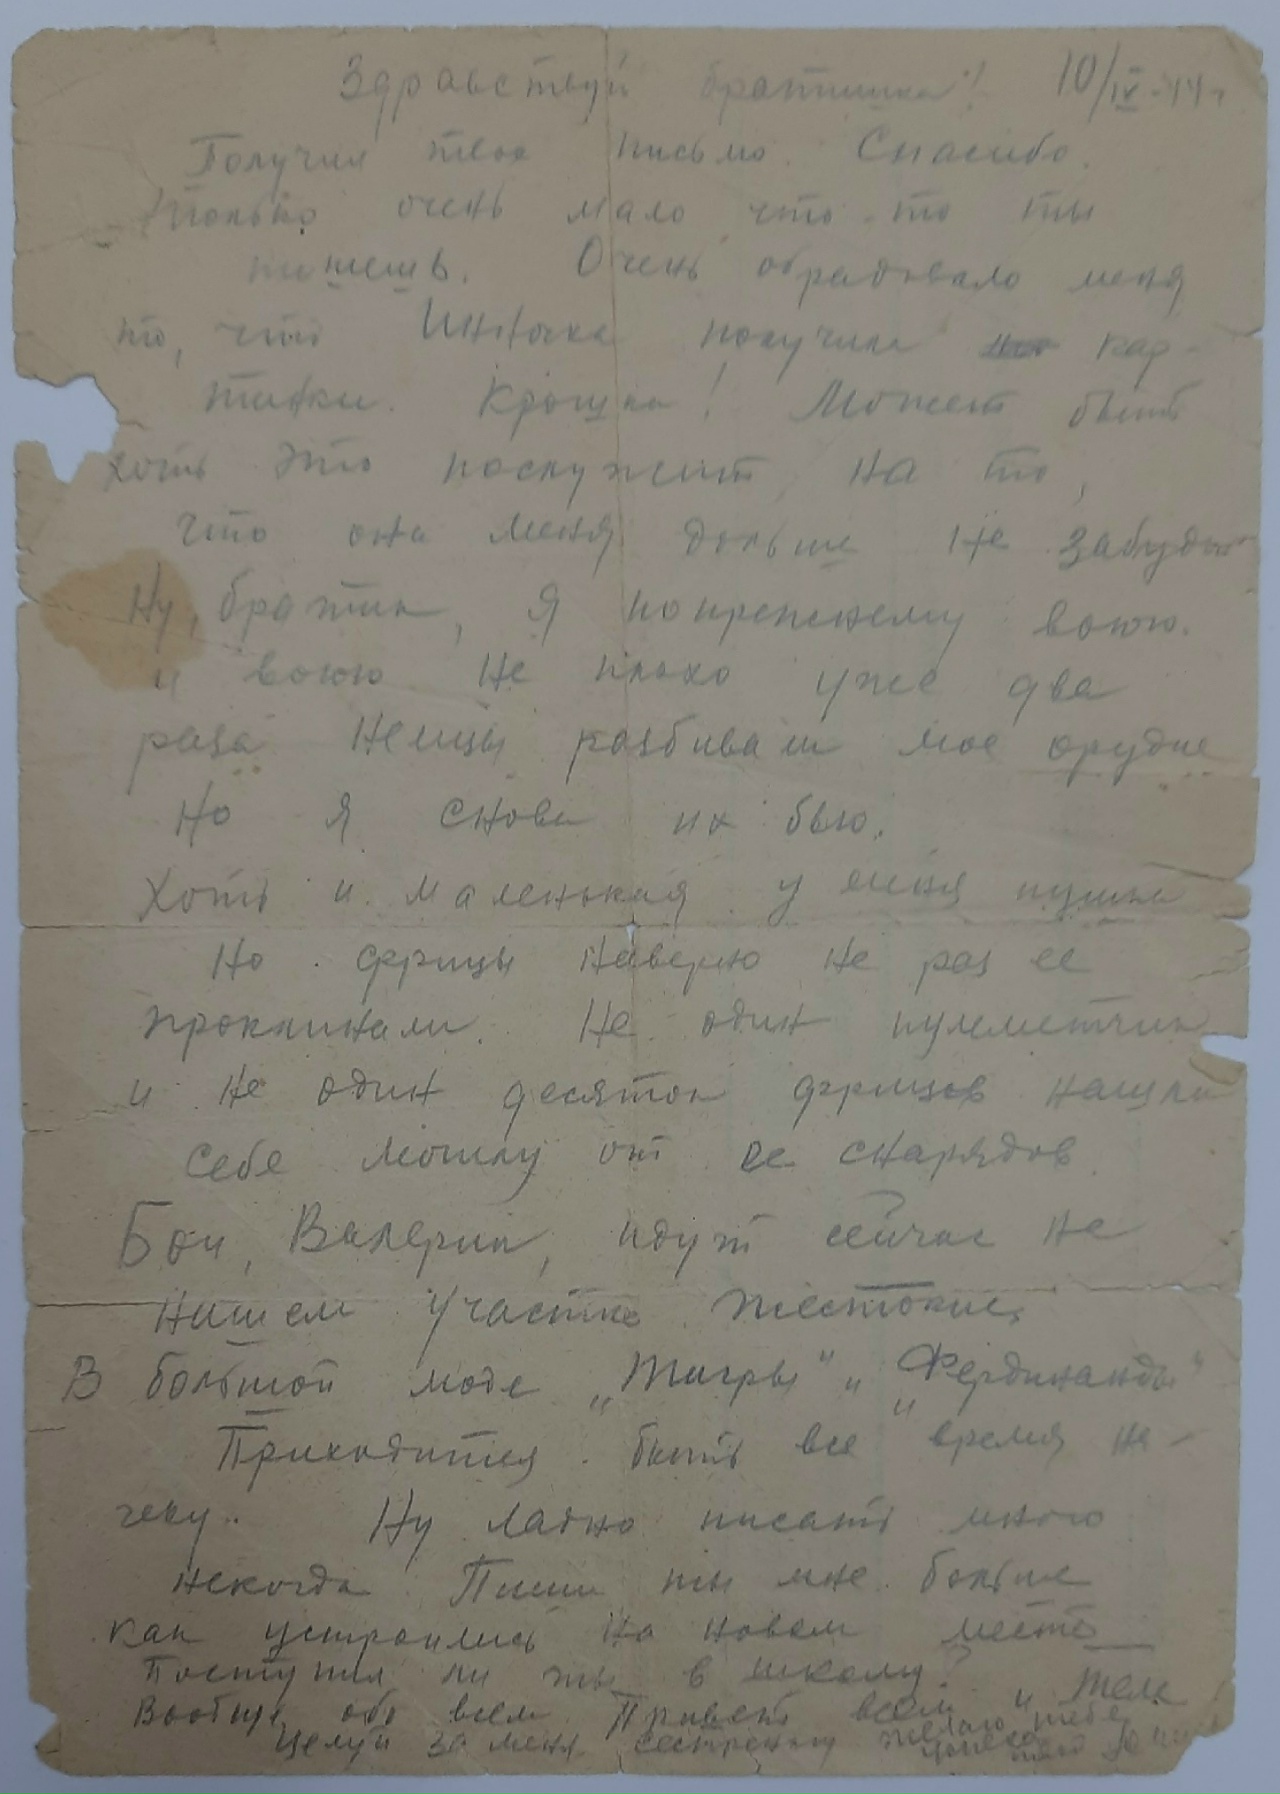 Здравствуй братишка! 10/IV-44г
Получил твое письмо. Спасибо.
Только очень мало что-то ты
пишешь. Очень обрадовало меня
то, что Инночка получила кар-
тинки. Крошка! Может быть
хоть это послужит, на то,
что она меня дольше не забудет
Ну, братик, я попрежнему воюю.
и воюю не плохо уже два
раза немцы разбивали мое орудие
Но я снова их бью.
Хоть и маленькая у меня пушка
Но фрицы наверно не раз ее
проклинали. Не один пулеметчик
и не один десяток фрицев нашли
себе могилу от ее снарядов.
Бои, Валерик, идут сейчас на
нашем участке жестокие,
В большой моде „Тигры" и „Фердинанды"
Приходится быть все время на-
чеку.. Ну ладно писать много
некогда. Пиши ты мне больше
как устроились на новом месте
Поступил ли ты в школу?
Вообще обо всем Привет всем и Теме
Целуй за меня сестренку желаю тебе
успеха твой